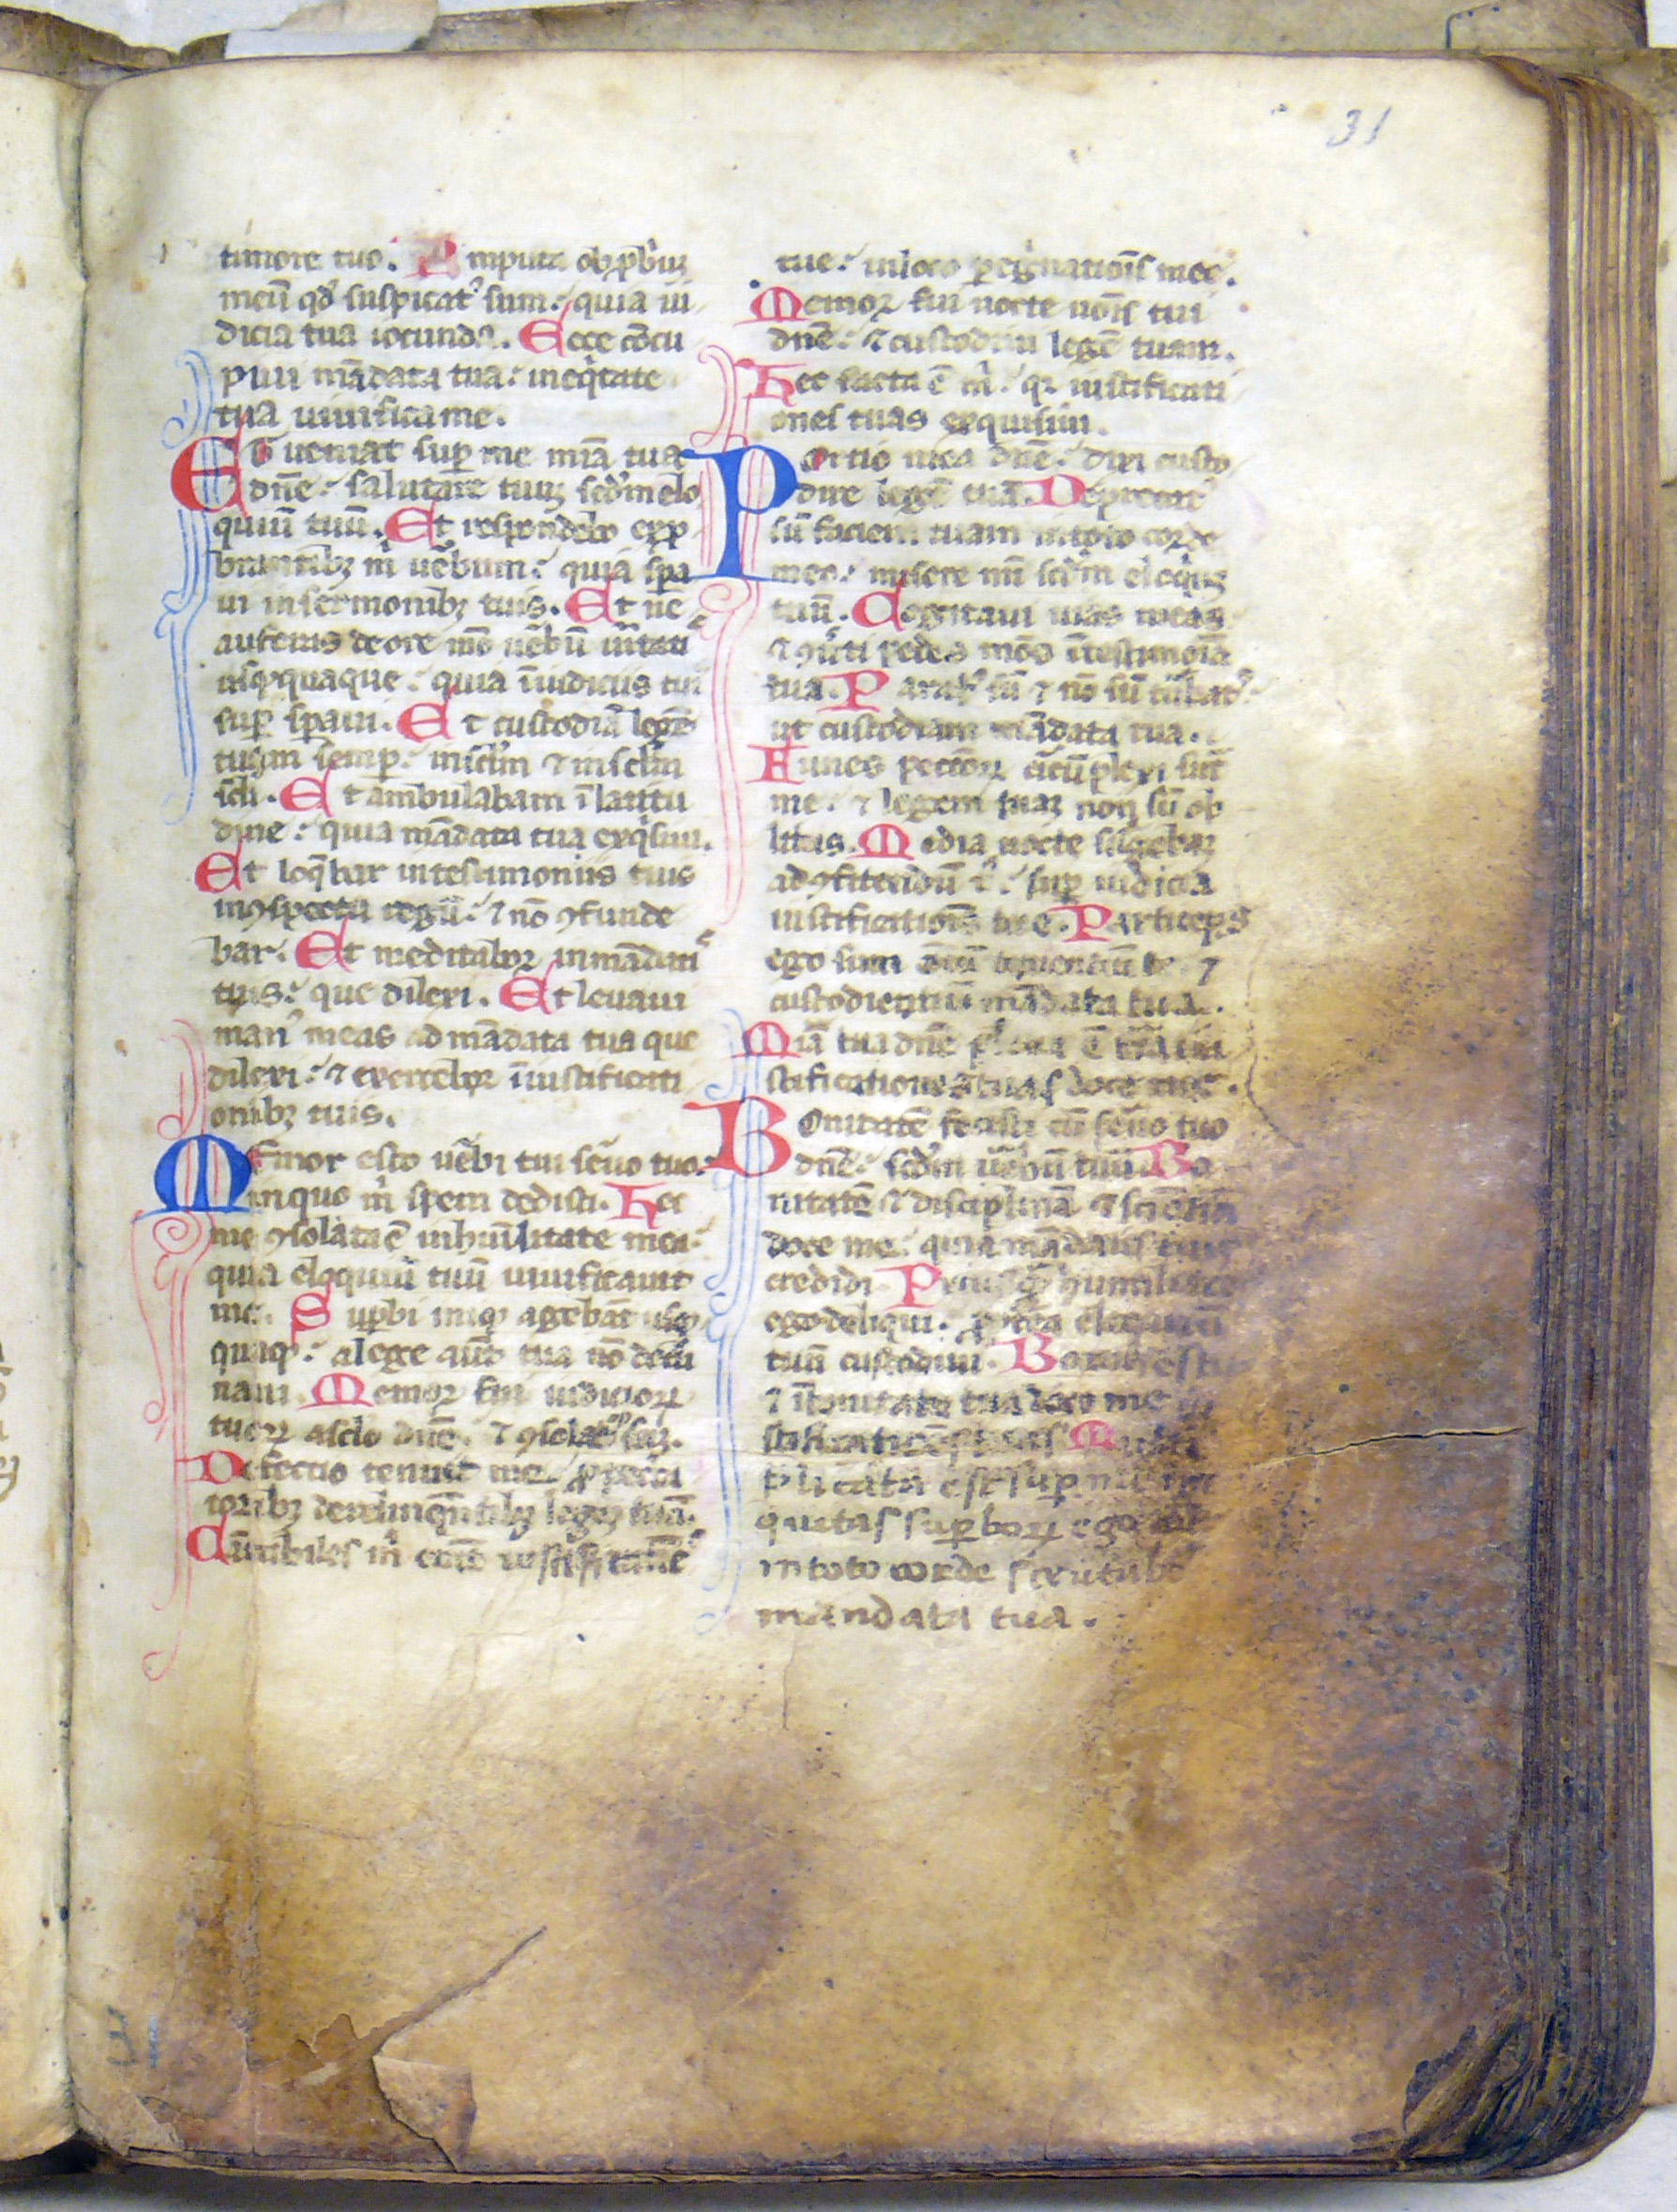 31
timore tuo. Amputa obprobriũ
meũ qd̉ suspicat᷒ sum: quia iu
dicia tua iocunda. Ecce cõcu
piui mãdata tua: in eqͥtate
tua uiuifica me.
Et ueniat sup̱ me mĩa tua
dñe: salutare tuũ scd̉m elo
quiũ tuũ. Et respondebo exp̱
brantibꝫ m̉ uẽbum: quia sp̱a
ui in sermonibꝫ tuis. Et ne
auferas de ore mõ uẽbũ ũitati
usq̱quaque: quia ĩ iudiciis tui
sup̱ sp̱aui. Et custodiã legẽ
tuam semp̱: in sc̃lm ⁊ in sc̃lm
sc̃li. Et ambulabam ĩ latitu
dine: quia mãdata tua exqͥsiui.
Et loq̃bar in testimoniis tuis
in ꝯspectu regũ: ⁊ nõ ꝯfunde
bar. Et meditaboꝛ in mãdati
tuis: que dilexi. Et leuaui
man᷒ meas ad mãdata tua que
dilexi: ⁊ exercebor ĩ iustificati
onibꝫ tuis.
Memor esto uẽbi tui sẽuo tuo:
in quo m̉ spem dedisti. Hec
me ꝯsolata ẽ in humilitate mea:
quia eloquiũ tuũ uiuificauit
me. Supbi iniq̱ agebãt usq̱
quaq̱: a lege aũt tua nõ decli
naui. Memoꝛ fui iudicioꝝ
tuoꝝ a sc̃lo dñe: ⁊ ꝯsolat᷒ sũ.
Defectio tenuit me: p̱ pecca
toribꝫ derelinquẽtibꝫ legẽ tuã.
Cãtabiles m̉ erãt iustificatiõe
tue: in loco p̱egͥnationis mee.
Memoꝛ fui nocte nõis tui
dñe: ⁊ custodiui legẽ tuam.
Hec facta ẽ m̉: qꝛ iustificati
ones tuas exquisiui.
Portio mea dñe: dixi custo
dire legẽ tuã. Deprecat᷒
sũ faciem tuam in toto corde
meo: misere mĩ scd̉m eloqͥuꝫ
tuũ. Cogitaui uias meas
⁊ ꝯũti pedes meos ĩ testimonia
tua. Parat᷒ sũ ⁊ nõ sũ tũbat᷒
ut custodiam mãdata tua.
Funes peccoꝝ circũplexi sũt
me: ⁊ legem tuaꝫ non sũ ob
litus. Media nocte surgebaꝫ
ad ꝯfitendũ t̉: sup̱ iudicia
iustificationis tue. Particeps
ego sum oĩũ timentiũ te ⁊
custodientiũ mãdata tua.
Mĩa tua dñe plena ẽ t̃ra iu
stificationes tuas doce me.
Bonitatẽ fecisti cũ sẽuo tuo
dñe: scd̉m uẽbũ tuũ. Bo
nitatẽ ⁊ disciplinã ⁊ sciẽtiã
doce me: quia mãdatis tuis
credidi. Priusq̃ humiliarer
ego deliqui: p̱terea eloquiũ
tuũ custodiui. Bonus es tu
⁊ ĩ bonitate tua doce me
stificatiões tuas. Multi
plicata est sup̱ me ini
quitas sup̱boꝝ ego
in toto corde scrutabo
mandata tua.